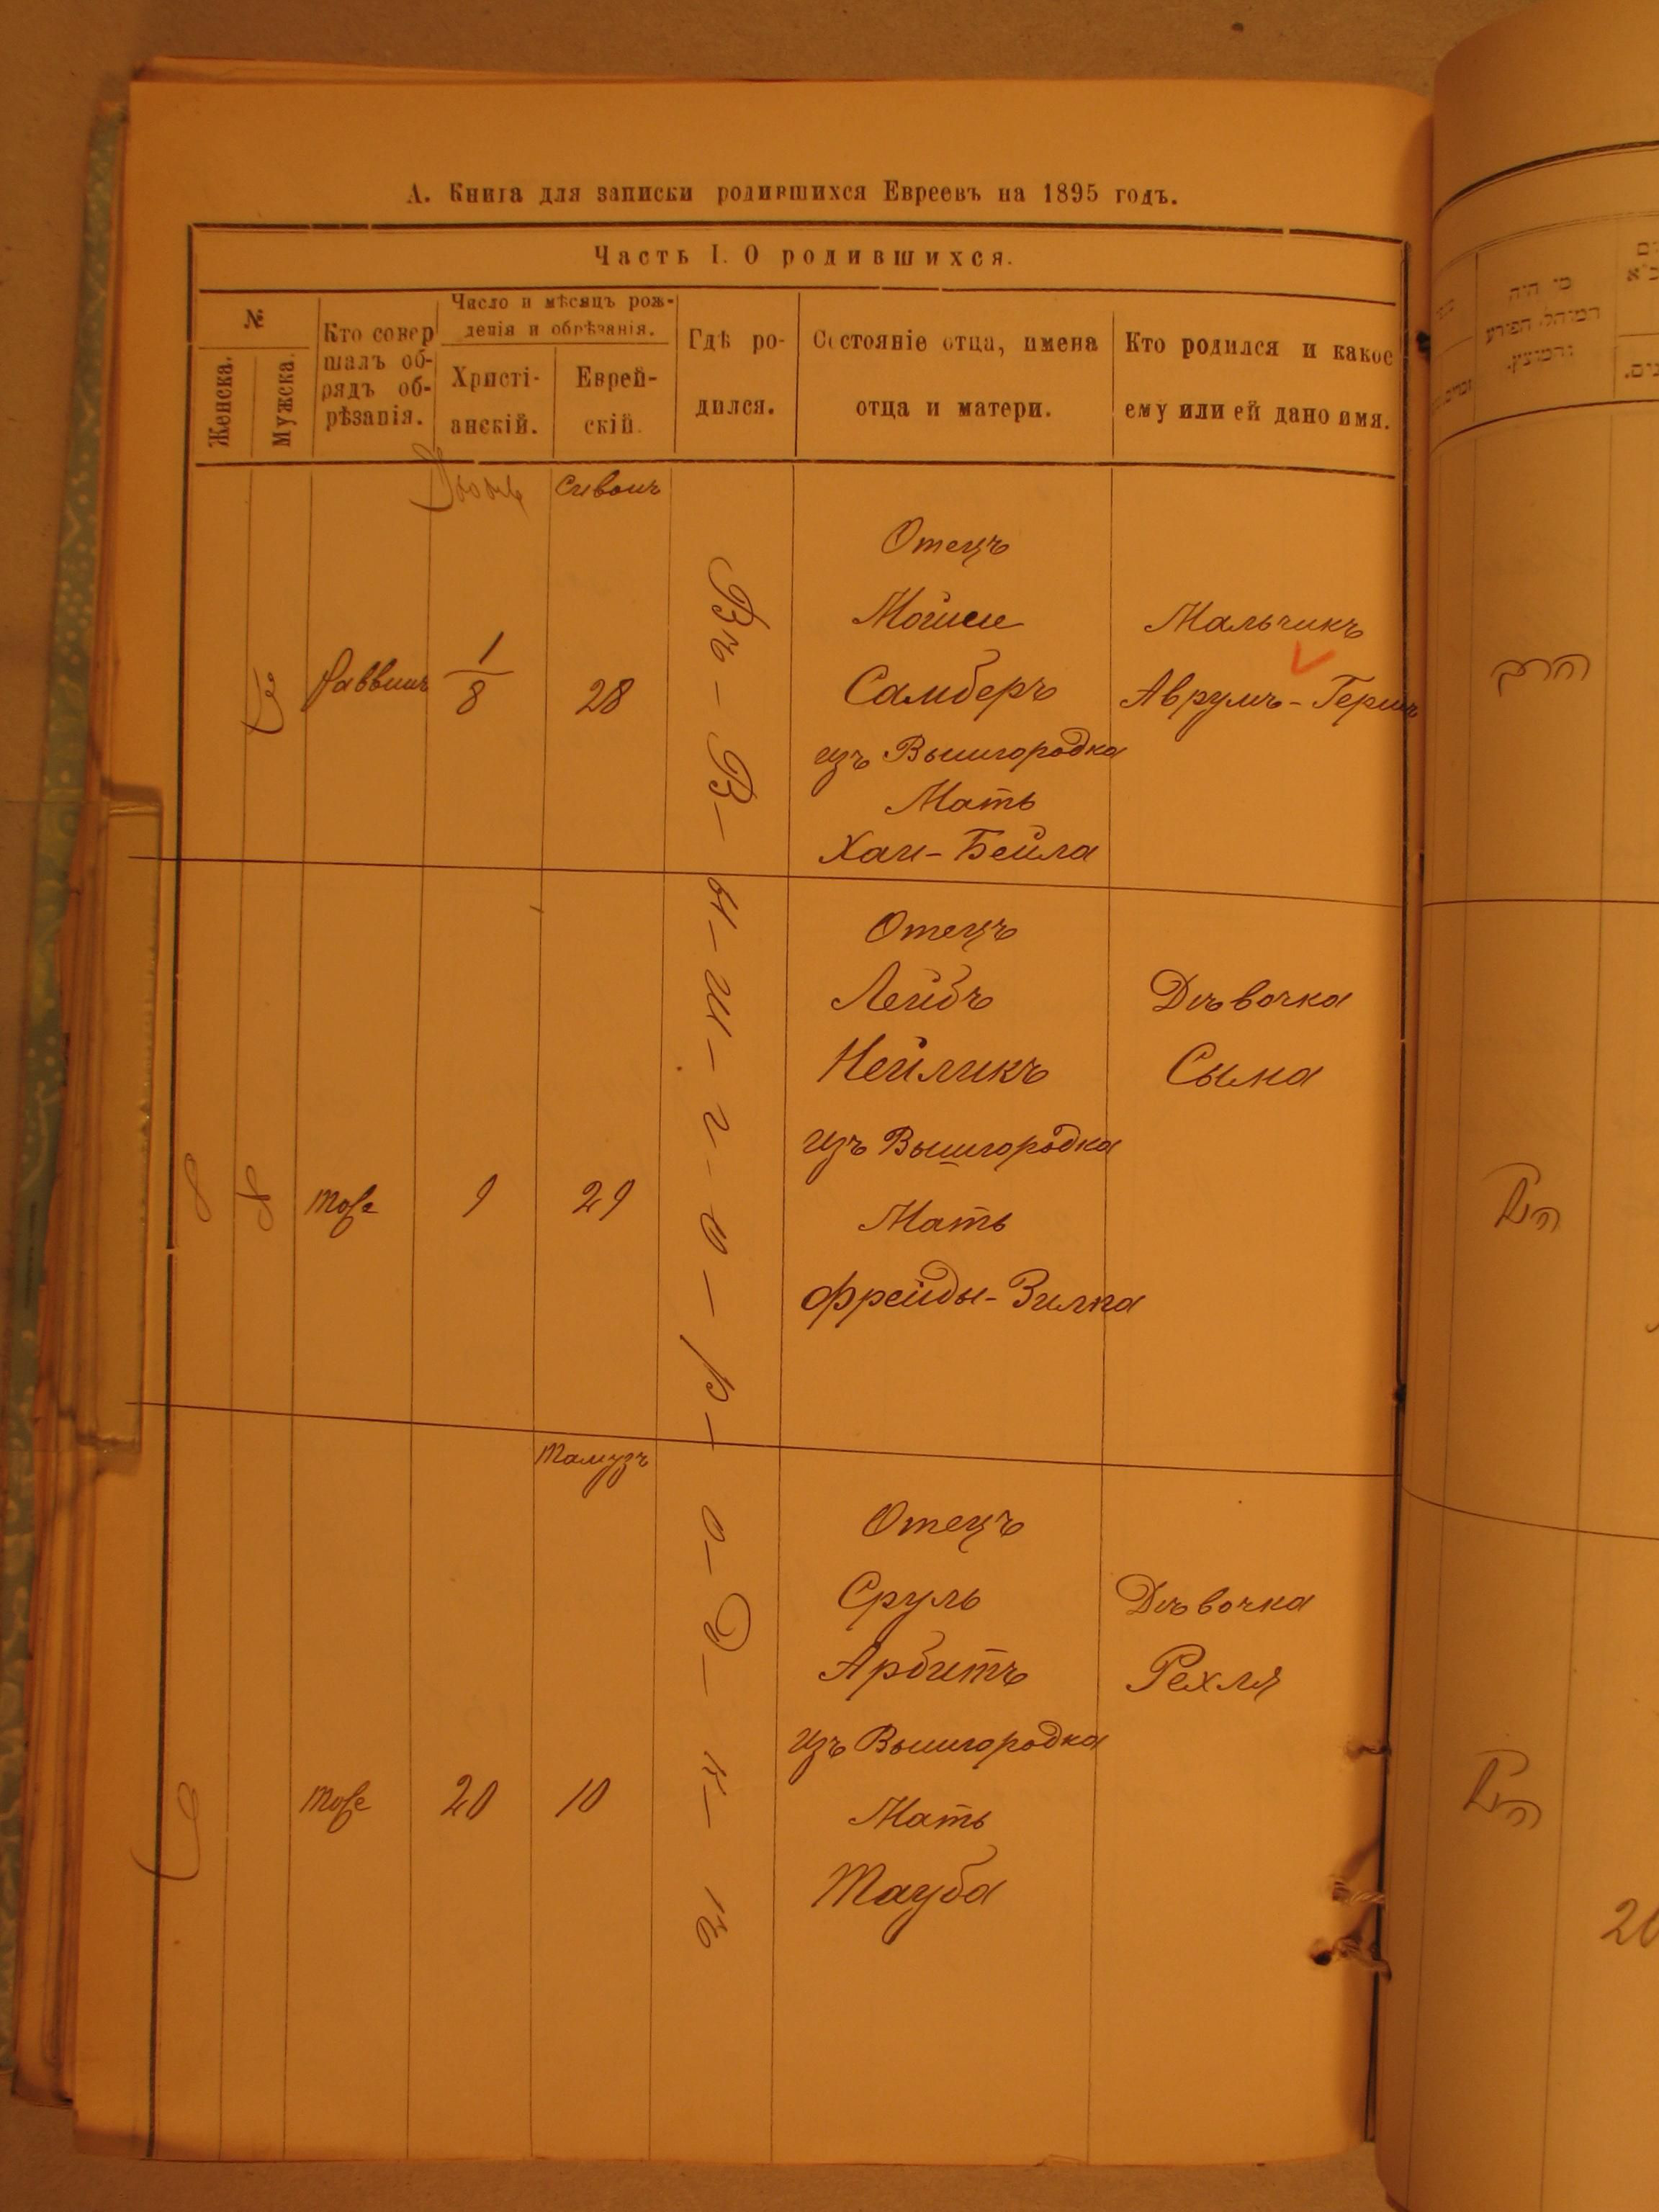 А. Книга для записки родившихся Евреевъ на 1895 годъ.
Часть I. О родившихся.
№
Женска.
Мужска.
Кто совер
шалъ об-
рядъ об-
рѣзанія.
Число и мѣсяцъ рож-
денія и обрѣзанія.
Христі-
анскій.
Еврей-
скій.
Гдѣ ро-
дился.
Состояніе отца, имена
отца и матери.
Кто родился и какое
ему или ей дано имя.
Сивонъ
Раввинъ
1
8
28
Въ - В - ы - ш - г - о - р - о - д - к - ѣ
Отецъ
Мойше
Самберъ
изъ Вышгородка
Мать
Хая-Бейла
Мальчикъ
Аврумъ-Гершъ
8
8
тоже
1
29
Отецъ
Лейбъ
Нейликъ
изъ Вышгородка
Мать
Фрейды-Зилпа
Дѣвочка
Сыма
Тамузъ
тоже
20
10
Отецъ
Сруль
Арбитъ
изъ Вышгородка
Мать
Тауба
Дѣвочка
Рехля
מי היה
המוהל הפורע
והמוצץ.
הרב